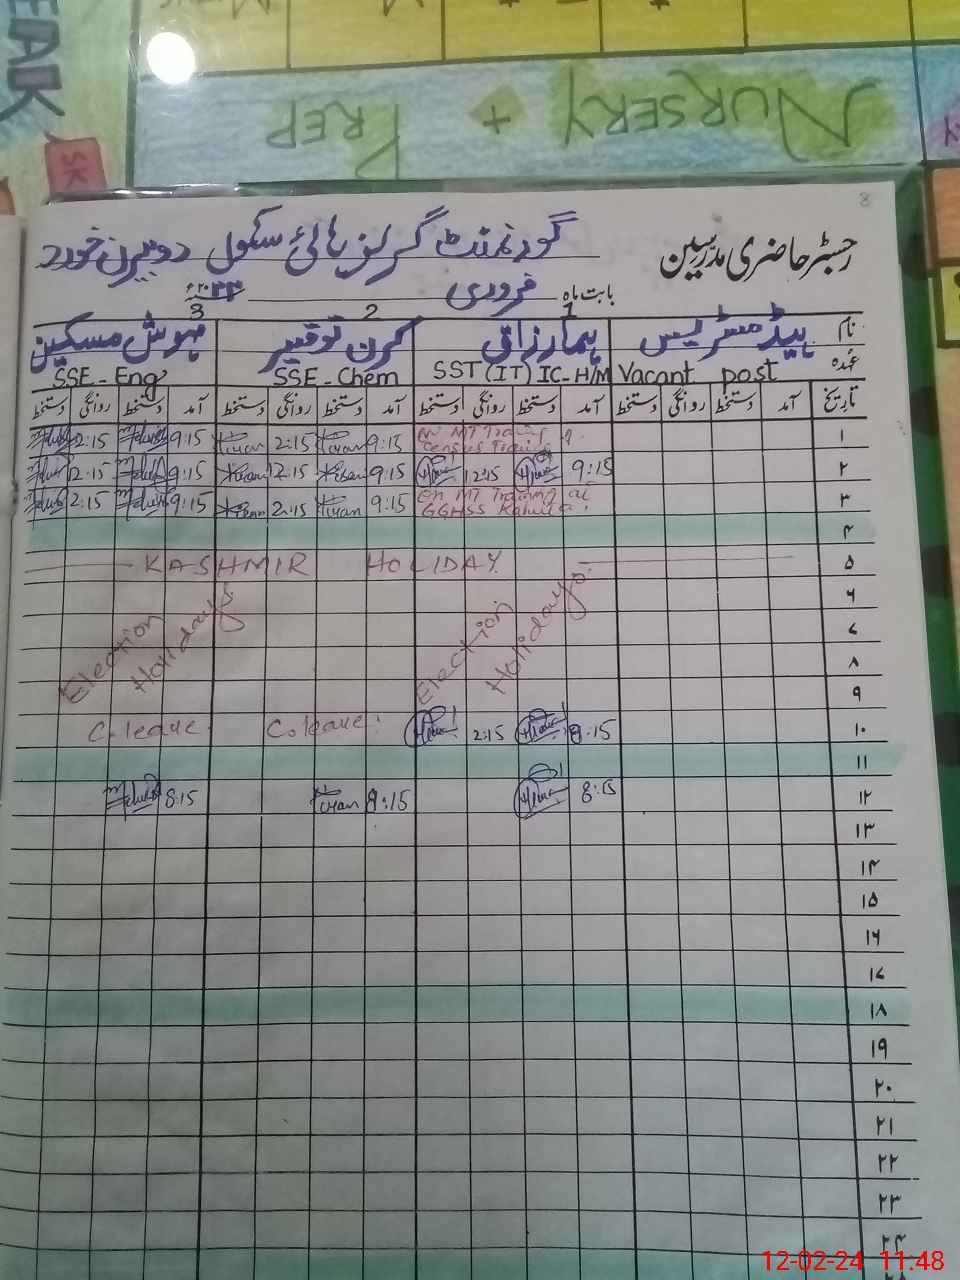 NURSERY + PREP
8
رجسٹر حاضری مدرسین
گورنمنٹ گرلز ہائی سکول دوبیرن خورد
بابت ماہ فروری
1 2 3
نام ہیڈ مسٹریس ہما رزاق کرن توقیر مہوش مسکین
عہدہ Vacant post SST (IT) IC-H/M SSE-Chem SSE-Eng
تاریخ آمد دستخط روانگی دستخط آمد دستخط روانگی دستخط آمد دستخط روانگی دستخط آمد دستخط روانگی دستخط
۱ on MT Training Census Training 9:15 Kiran 2:15 Kiran 9:15 2:15
۲ 9:15 12:15 9:15 Kiran 12:15 Kiran 9:15 12:15
۳ on MT Training at GGHSS Kahuta. 9:15 Kiran 2:15 Kiran 9:15 2:15
۴
۵ KASHMIR HOLIDAY
۶ Election Holidays. Election Holidays.
۷
۸
۹
۱۰ 9:15 2:15 C.leave. C.leave.
۱۱
۱۲ 8:15 8:15 Kiran 8:15
۱۳
۱۴
۱۵
۱۶
۱۷
۱۸
۱۹
۲۰
۲۱
۲۲
۲۳
۲۴
12-02-24 11:48